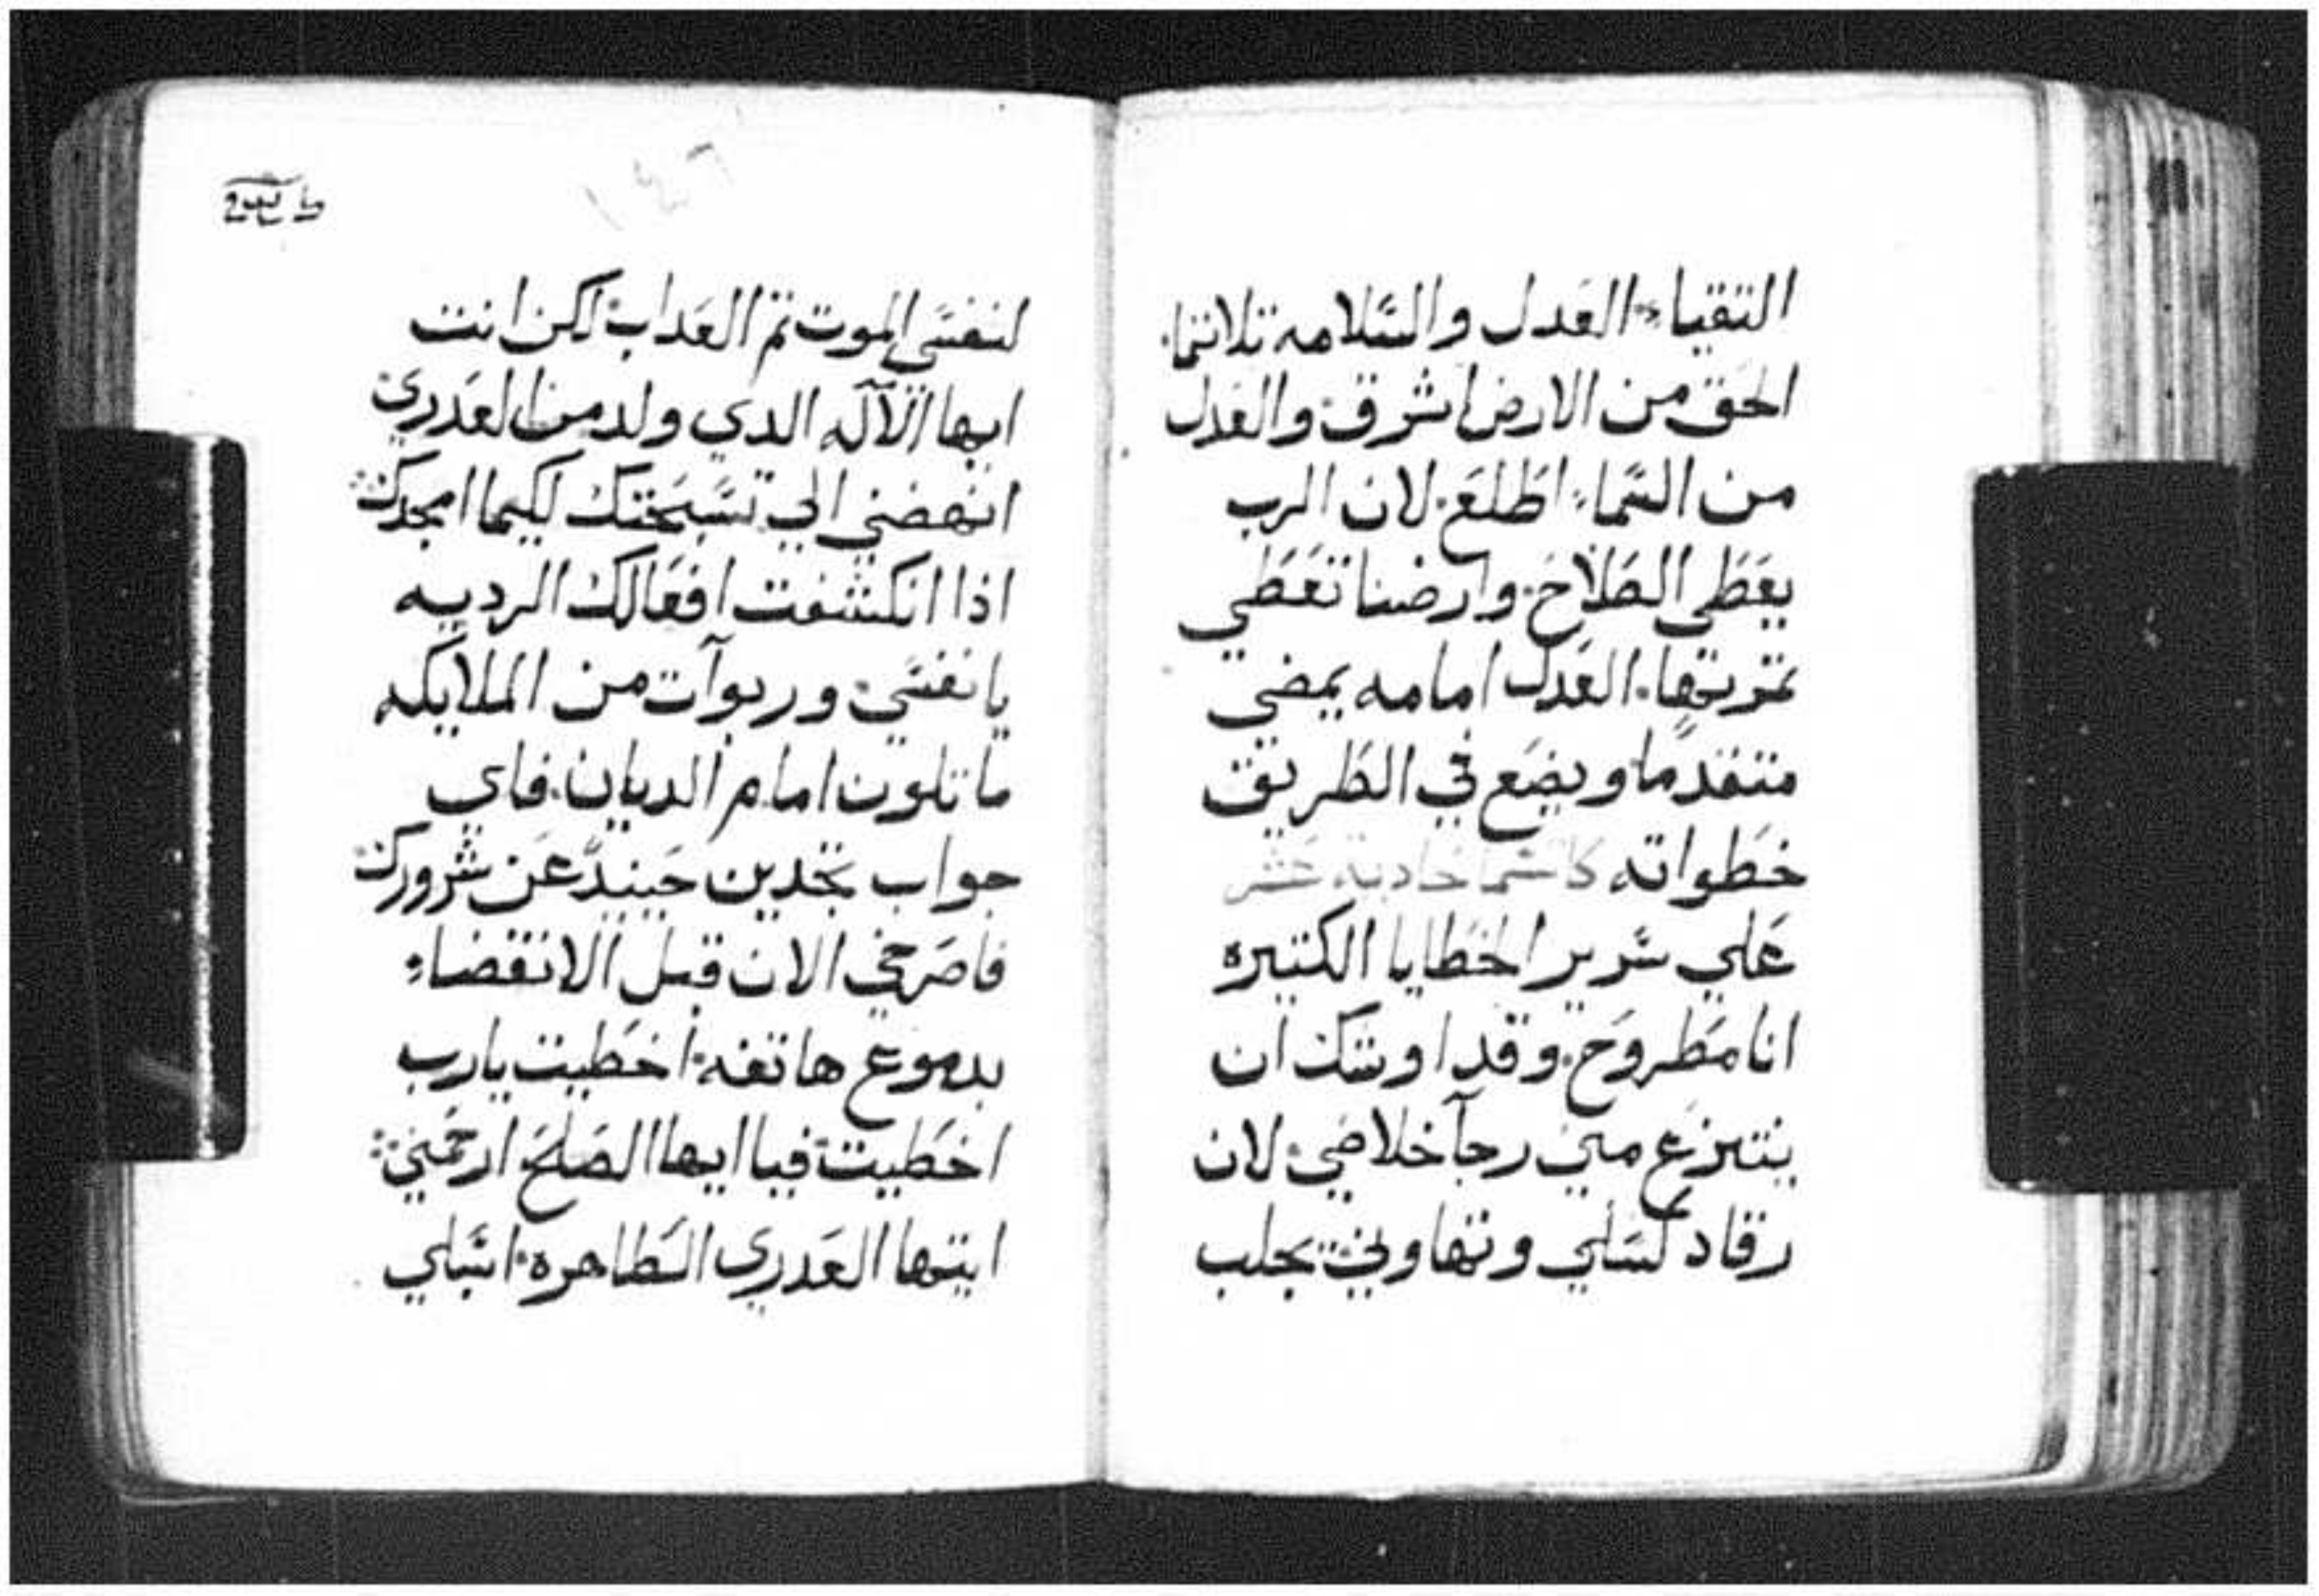 التقياء العدل والسلامه تلاتما.
الحق من الارض اشرق والعدل
من السماء اطلع. لان الرب
يعطي الصلاح. وارضنا تعطي
تمرتها. العدل امامه يمضي
متقدما ويضع في الطريق
خطواته
علي سرير الخطايا الكتيره
انا مطروح. وقد اوشك ان
ينتزع مني رجا خلاصي. لان
رقاد كسلي وتهاوني يجلب
١٤٦
لنفسي الموت تم العداب لكن انت
ايها الآله الدي ولد من العدري
انهضني الي تسبحتك لكيما امجدك
اذا انكشفت افعالك الرديه
يا نفسي وربوآت من الملايكه
ماتلون امام الديان. فاي
جواب تجدين حينيد عن شرورك
فاصرخي الان قبل الانقضاء
بدموع هاتفه. اخطيت يارب
اخطيت فيا ايها الصلح ارحمني
ايتها العدري الطاهره. اسبلي